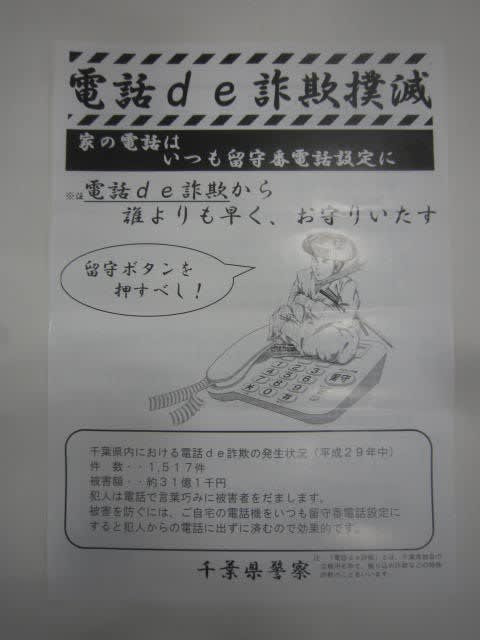 電話ｄｅ詐欺撲滅
家の電話は
いつも留守番電話設定に
※注電話ｄｅ詐欺から
誰よりも早く、お守りいたす
留守ボタンを
押すべし！
1 2 3
4 5 6
7 8 9
* 0 #
留守
千葉県内における電話ｄｅ詐欺の発生状況（平成２９年中）
件　数・・１,５１７件
被害額・・約３１億１千円
犯人は電話で言葉巧みに被害者をだまします。
被害を防ぐには、ご自宅の電話機をいつも留守番電話設定に
すると犯人からの電話に出ずに済むので効果的です。
千葉県警察
注　「電話ｄｅ詐欺」とは、千葉県独自の